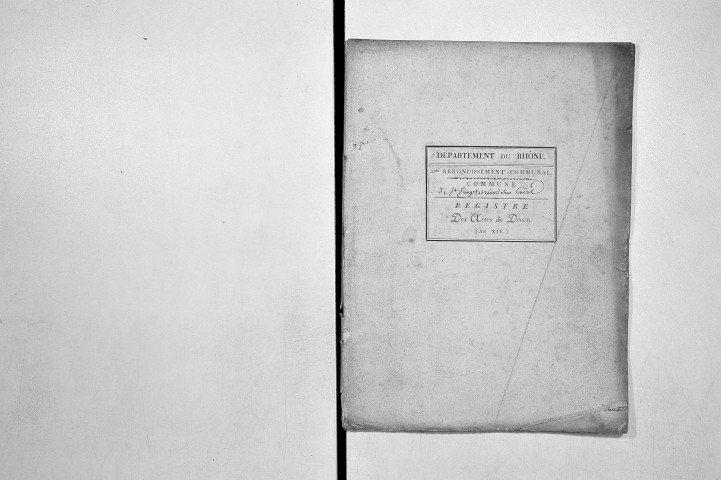 DÉPARTEMENT DU RHÔNE.
2me ARRONDISSEMENT COMMUNAL.
COMMUNE
De St Simphorien sur Coise
REGISTRE
Des Actes de Décès
(An XIV.)